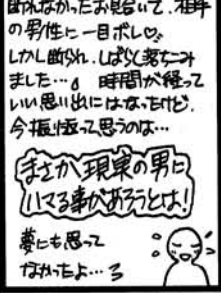 断れなかったお見合いで、相手
の男性に一目ボレ♡。
しかし断られ、しばらく落ちこみ
ました…。 時間が経って
いい思い出にはなったけど、
今振り返って思うのは…
まさか現実の男に
ハマる事があろうとは!
夢にも思って
なかったよ…ろ